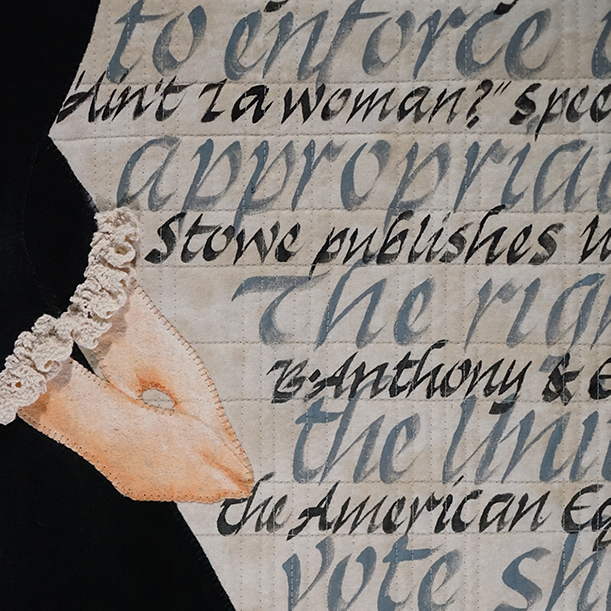 to enforce
"Ain't I a woman?" spee
appropria
Stowe publishes
The rig
B. Anthony & E
the Uni
the American Eq
vote sh